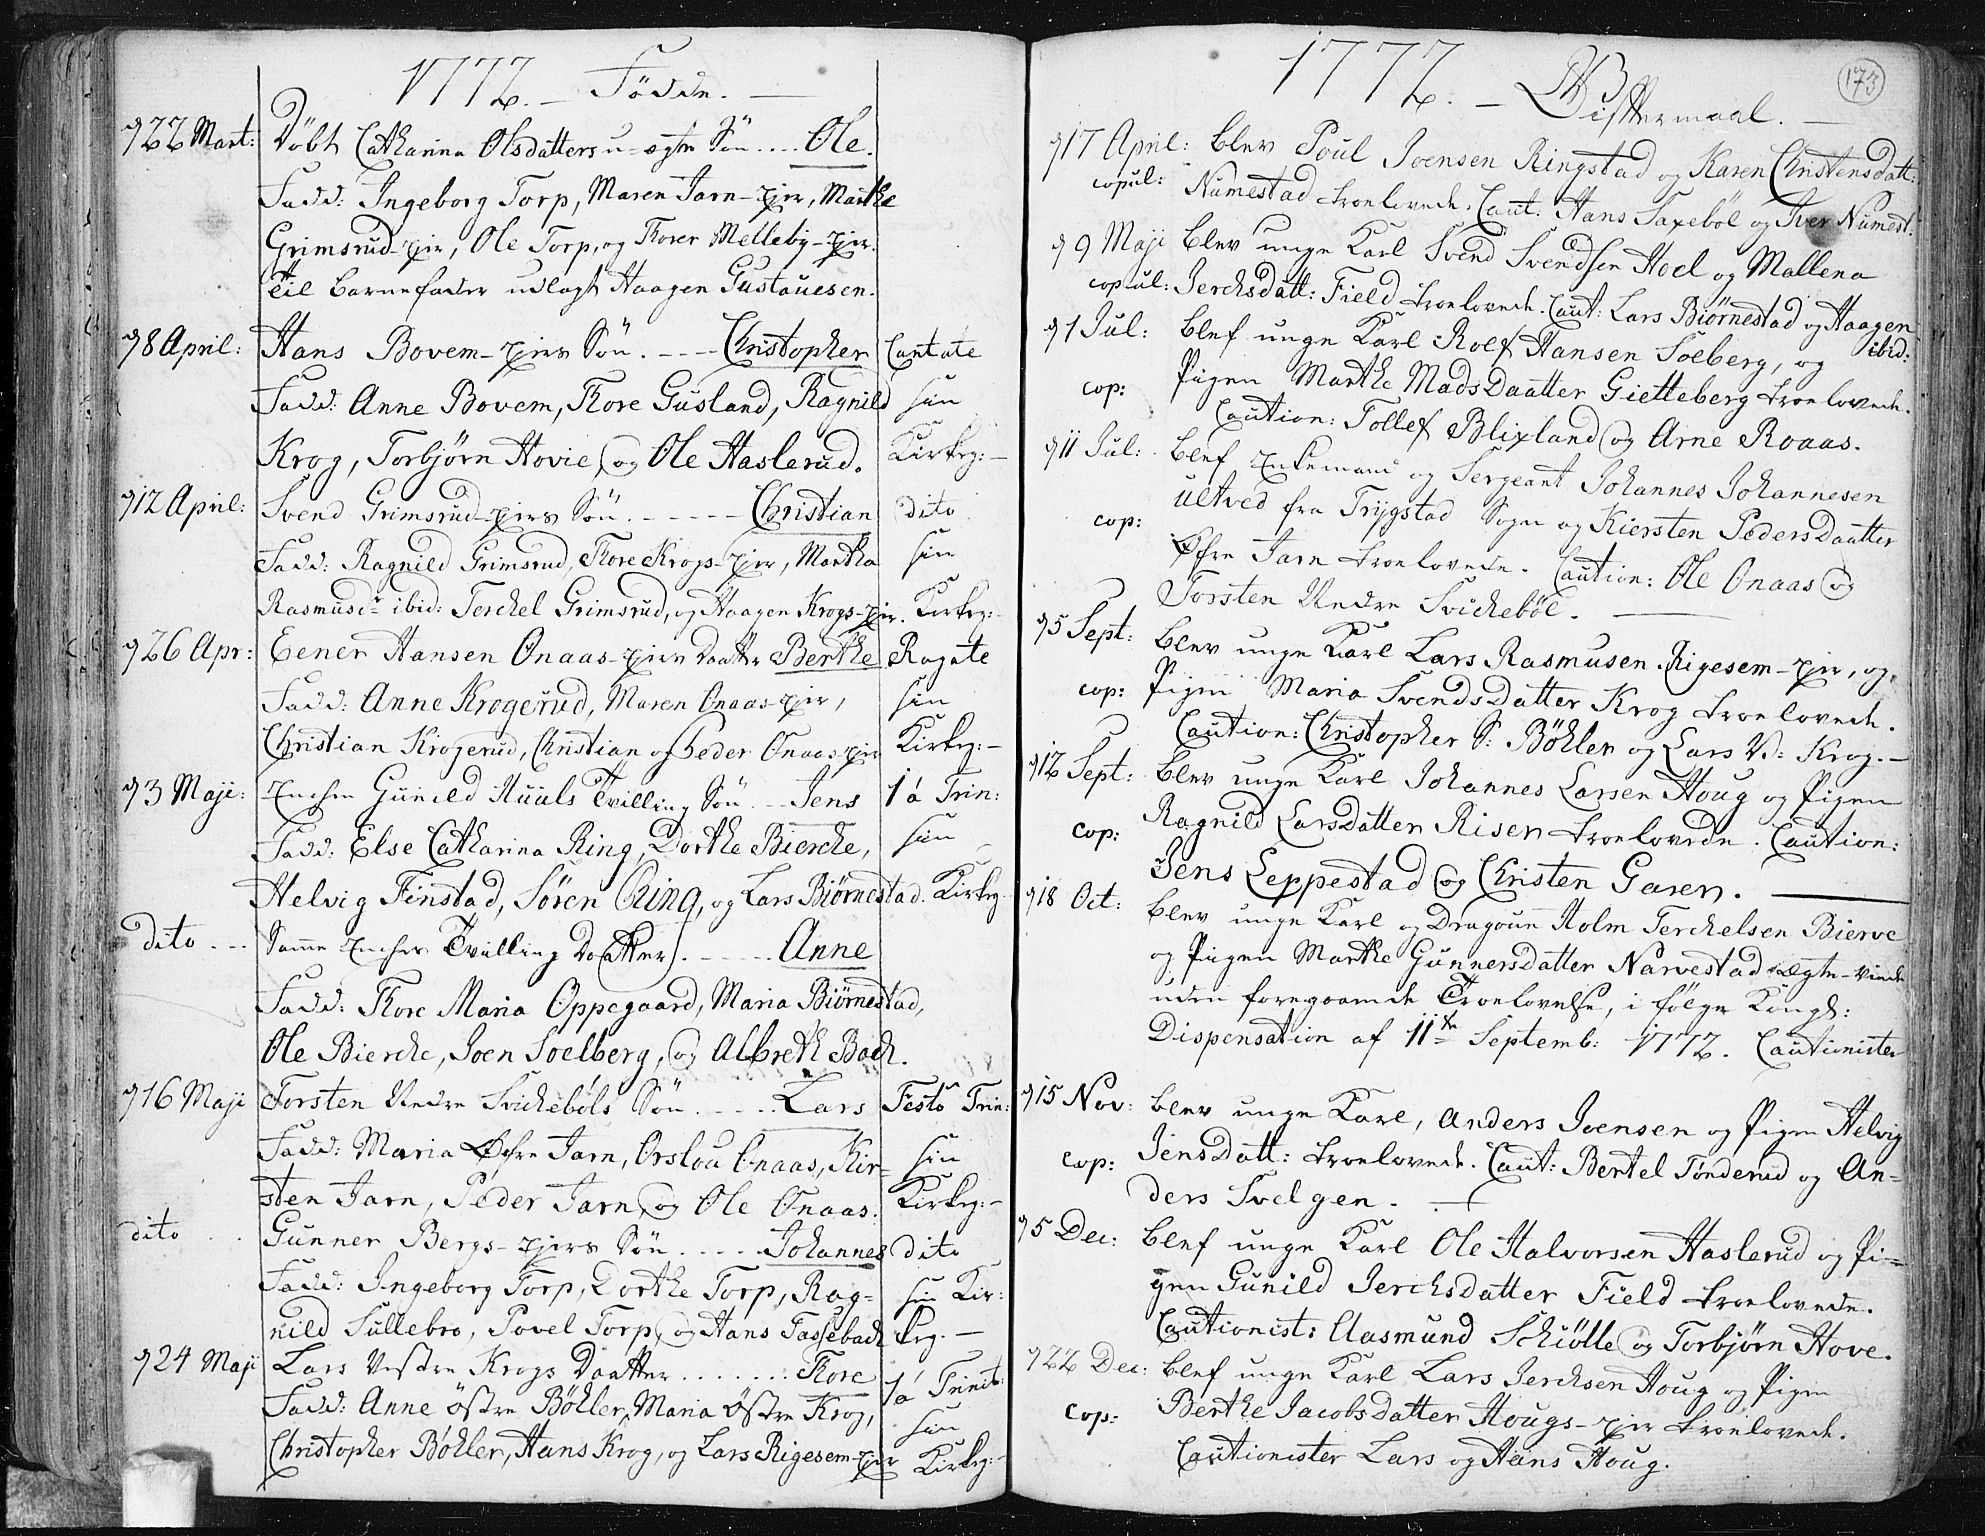 1772. – Födde. –
d 22 Mart: Döbt Catharina Olsdatters u-ægte Sön .... Ole.
Fadd: Ingeborg Torp, Maren Jarn-ejer, Marthe
Grimsrud-ejer, Ole Torp, og Thorer Melleby-ejer.
til Barnefader udlagt Haagen Gustavesen.
d 8 April: Hans Bovem-ejers Sön. ---- Christopher Cantate
Fadd: Anne Bovem, Thore Gusland, Ragnild hin
Krog, Torbjørn Hovie, og Ole Haslerud. Kirkeg: –
d 12 April: Svend Grimsrud-ejers Sön. ----- Christian dito
Fadd: Ragnild Grimsrud, Thore Krogs-ejer, Martha hin
Rasmusd: ibid: Terchel Grimsrud, og Haagen Krogs-ejer. Kirkeg: –
d 26 Apr: Eener Hansen Onaas-ejers Datter Berthe Rogate
Fadd: Anne Krogerud, Maren Onaas-ejer, hin
Christian Krogerud, Christian og Peder Onaas-ejer Kirkeg: –
d 3 Maji: Enchen Gunild Ruuls Tvilling Sön ... Jens 1 á Trin:
Fadd: Else Catharina Ring, Dorthe Bierche, hin
Helvig Finstad, Sören Ring, og Lars Biörnestad. Kirkeg
dito ... Samme Enches Tvilling Datter. ----- Anne
Fadd: Thore Maria Oppegaard, Maria Biörnestad,
Ole Bierche, Joen Soelberg, og Albreth Bach.
d 16 Maji Torsten Nedre Svicheböls Sön ..... Lars Festo Trin:
Fadd: Maria Øfre Jarn, Orslou Onaas, Kir- hin
sten Jarn, Peder Jarn, og Ole Onaas. Kirkeg: –
dito .. Gunner Bergs-ejers Sön ..... Johannes dito
Fadd: Ingeborg Torp, Dorthe Torp, Rag- hin Kir:
nild Sullebro, Povel Torp, og Hans Fassebach keg. –
d 24 Maji Lars Vestre Krogs Daatter ....... Thore 1 á Trinit:
Fadd: Anne östre Böhler, Maria östre Krog, hin
Christopher Böhler, Hans Krog, og Lars Rigesem-ejer Kirkeg: –
1772. – Gifftermaal. –
173
d 17 April: Blev Poul Joensen Ringstad og Karen Christensdatt:
copul: Numestad troelovede. Caut: Hans Saxeböl og Iver Numest.
d 9 Maji Blev unge Karl Svend Svendsen Hoel og Mallena
copul: Jerchsdatt: Field troelovede. Caut: Lars Biörnestad og Haagen
ibid:
d 1 Jul: Blef unge Karl Rolf Hansen Soeberg, og
cop: Pigen Marthe MadsDaatter Gietteberg troelovede.
Caution: Tollef Blixland og Arne Roaas.
d 11 Jul: Blef Enkemand og Sergeant Johannes Johannesen
cop: Ultved fra Trygstad Sogn og Kiersten PedersDaatter
Øfre Jarn troelovede. Caution: Ole Onaas og
Torsten Nedre Svicheböl.
d 5 Sept: Blev unge Karl Lars Rasmusen Rigesem-ejer, og,
cop: Pigen Maria Svendsdatter Krog troelovede.
Caution: Christopher S: Böhler og Lars V: Krog. –
d 12 Sept: Blev unge Karl Johannes Larsen Houg og Pigen
cop: Ragnild Larsdatter Riser troelovede. Caution:
Jens Leppestad og Christen Garer.
d 18 Oct: Blev unge Karl og Dragoun Holm Terchelsen Bierve
og Piigen Marthe Gunnersdatter Narvestad Ægte-viede
uden foregaaende Troelovelse, i fölge Kongl:
Dispensation af 11te Septemb: 1772. Cautionister
d 15 Nov: Blev unge Karl, Anders Joensen og Pigen Helvig
cop: JensDatt: troelovede. Caut: Bertel Tønderud og An-
ders Svelgen. –
d 5 Dec: Blef unge Karl Ole Halvorsen Haslerud og Pi-
gen Gunild Jerchsdatter Field troelovede.
Cautionist: Aasmund Schiölle og Torbjørn Hove.
d 22 Dec: Blef unge Karl Lars Jerchsen Houg og Pigen
cop: Berthe Jacobsdatter Hougs-ejer troelovede.
Cautionister Lars og Hans Houg.